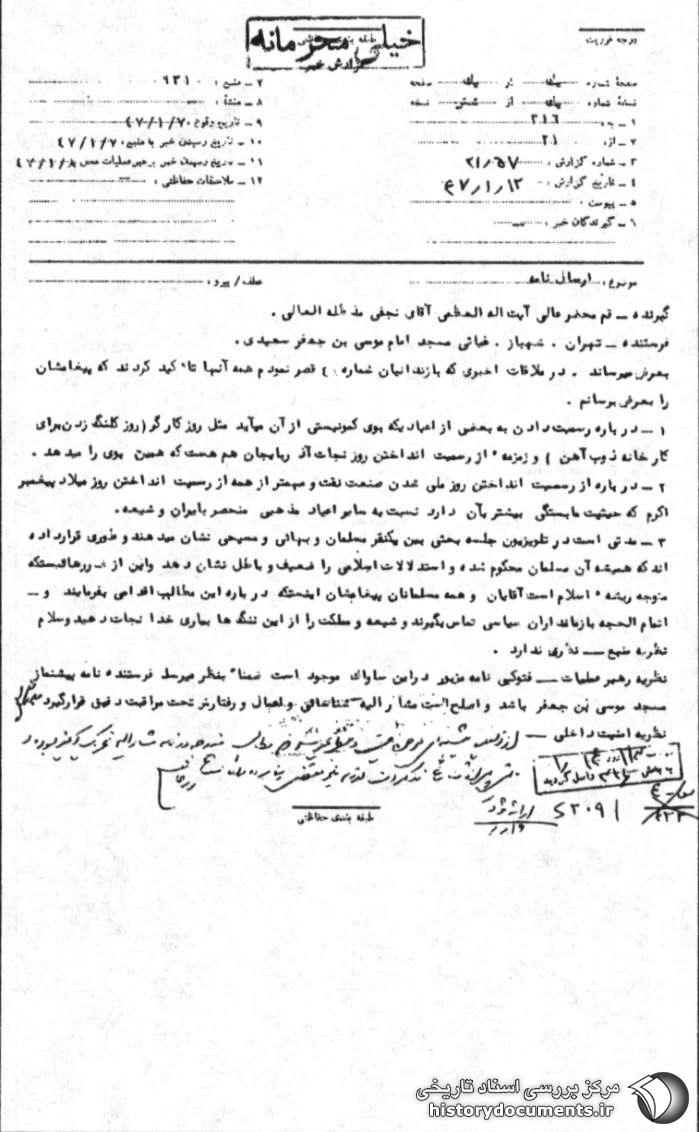 درجه فوریت
طبقه بندی حفاظتی
خیلی محرمانه
گزارش خبر
صفحه شماره یک از یک صفحه
نسخه شماره یک از شش نسخه
۱ ــ به : ۳۱۶
۲ ــ از : ۲۱
۳ ــ شماره گزارش :
۴ ــ تاریخ گزارش : ۴۷/۱/۱۳
۵ ــ پیوست :
۶ ــ گیرندگان خبر :
۷ ــ منبع : ۹۳۱۰
۸ ــ منشأ :
۹ ــ تاریخ وقوع ۴۷/۱/۷
۱۰ ــ تاریخ رسیدن خبر به منبع ۴۷/۱/۷
۱۱ ــ تاریخ رسیدن خبر برهبر عملیات ۴۷/۱/۸
۱۲ ــ ملاحظات حفاظتی :
موضوع : ارسال نامه
عطف / پیرو :
گیرنده ــ قم محضر عالی آیت اله العظمی آقای نجفی مد ظله العالی .
فرستنده ــ تهران . شهباز . غیاثی مسجد امام موسی بن جعفر سعیدی .
بعرض میرساند . در ملاقات اخیری که با زندانیان شماره ۱ قصر نمودم همه آنها تاکید کردند که پیغامشان
را بعرض برسانم .
۱ ــ در باره رسمیت دادن به بعضی از اعیاد یکه بوی کمونیستی از آن میآید مثل روز کارگر (روز کلنگ زدن برای
کارخانه ذوب آهن ) و زمزمه ء از رسمیت انداختن روز نجات آذربایجان هم هست که همین بوی را میدهد .
۲ ــ در باره از رسمیت انداختن روز ملی شدن صنعت نفت و مهمتر از همه از رسمیت انداختن روز میلاد پیغمبر
اکرم که حیثیت ما بستگی بیشتر بآن دارد نسبت به سایر اعیاد مذهبی منحصر بایران و شیعه .
۳ ــ مدتی است در تلویزیون جلسه بحثی بین یکنفر مسلمان و بهائی و مسیحی نشان میدهند و طوری قرار داده
اند که همیشه آن مسلمان محکوم شده و استدلالات اسلامی را ضعیف و باطل نشان دهد واین از ضررهائیستکه
متوجه ریشه ء اسلام است آقایان و همه مسلمانان پیغامشان اینستکه در باره این مطالب اقدامی بفرمایند و ــ
اتمام الحجه بازمانداران سیاسی تماس بگیرند و شیعه و مملکت را از این ننگ ها بیاری خدا نجات دهید والسلام
نظریه منبع ــ نظری ندارد .
نظریه رهبر عملیات ــ فتوکپی نامه مزبور در این ساواک موجود است ضمنا" بنظر میرسد فرستنده نامه پیشنماز
مسجد موسی بن جعفر باشد و اصلح است مشارالیه شناسائی و اعمال و رفتارش تحت مراقبت دقیق قرار گیرد
نظریه امنیت داخلی ــ
طبقه بندی حفاظتی
مرکز بررسی اسناد تاریخی
historydocuments.ir